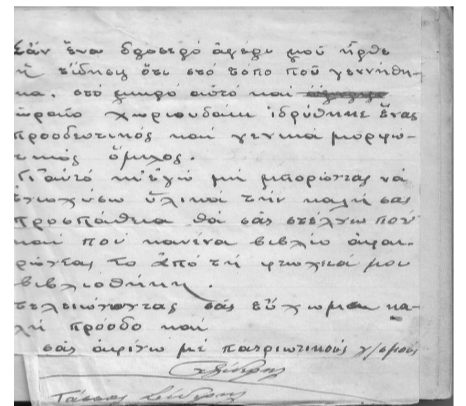 Σάν ἕνα δροσερό ἀγέρι μοῦ ἦρθε
ἡ εἴδησις ὅτι στό τόπο πού γεννήθη-
κα. στό μικρό αὐτό καί
ὡραῖο χωριουδάκι ἱδρύθηκε ἕνας
προοδευτικός καί γενικά μορφω-
τικός ὅμιλος.
Γι αὐτό κι ἐγώ μή μπορώντας νά
ἐνισχύσω ὑλικά τήν καλή σας
προσπάθεια θά σᾶς στέλνω πού
καί πού κανένα βιβλίο ἀφαι-
ρώντας το ἀπό τή φτωχικιά μου
βιβλιοθήκη.
τελειώνοντας σᾶς εὔχωμαι κα-
λή πρόοδο καί
σᾶς ἀφίνω μέ πατριωτικούς χ/σμούς
Τάσσος